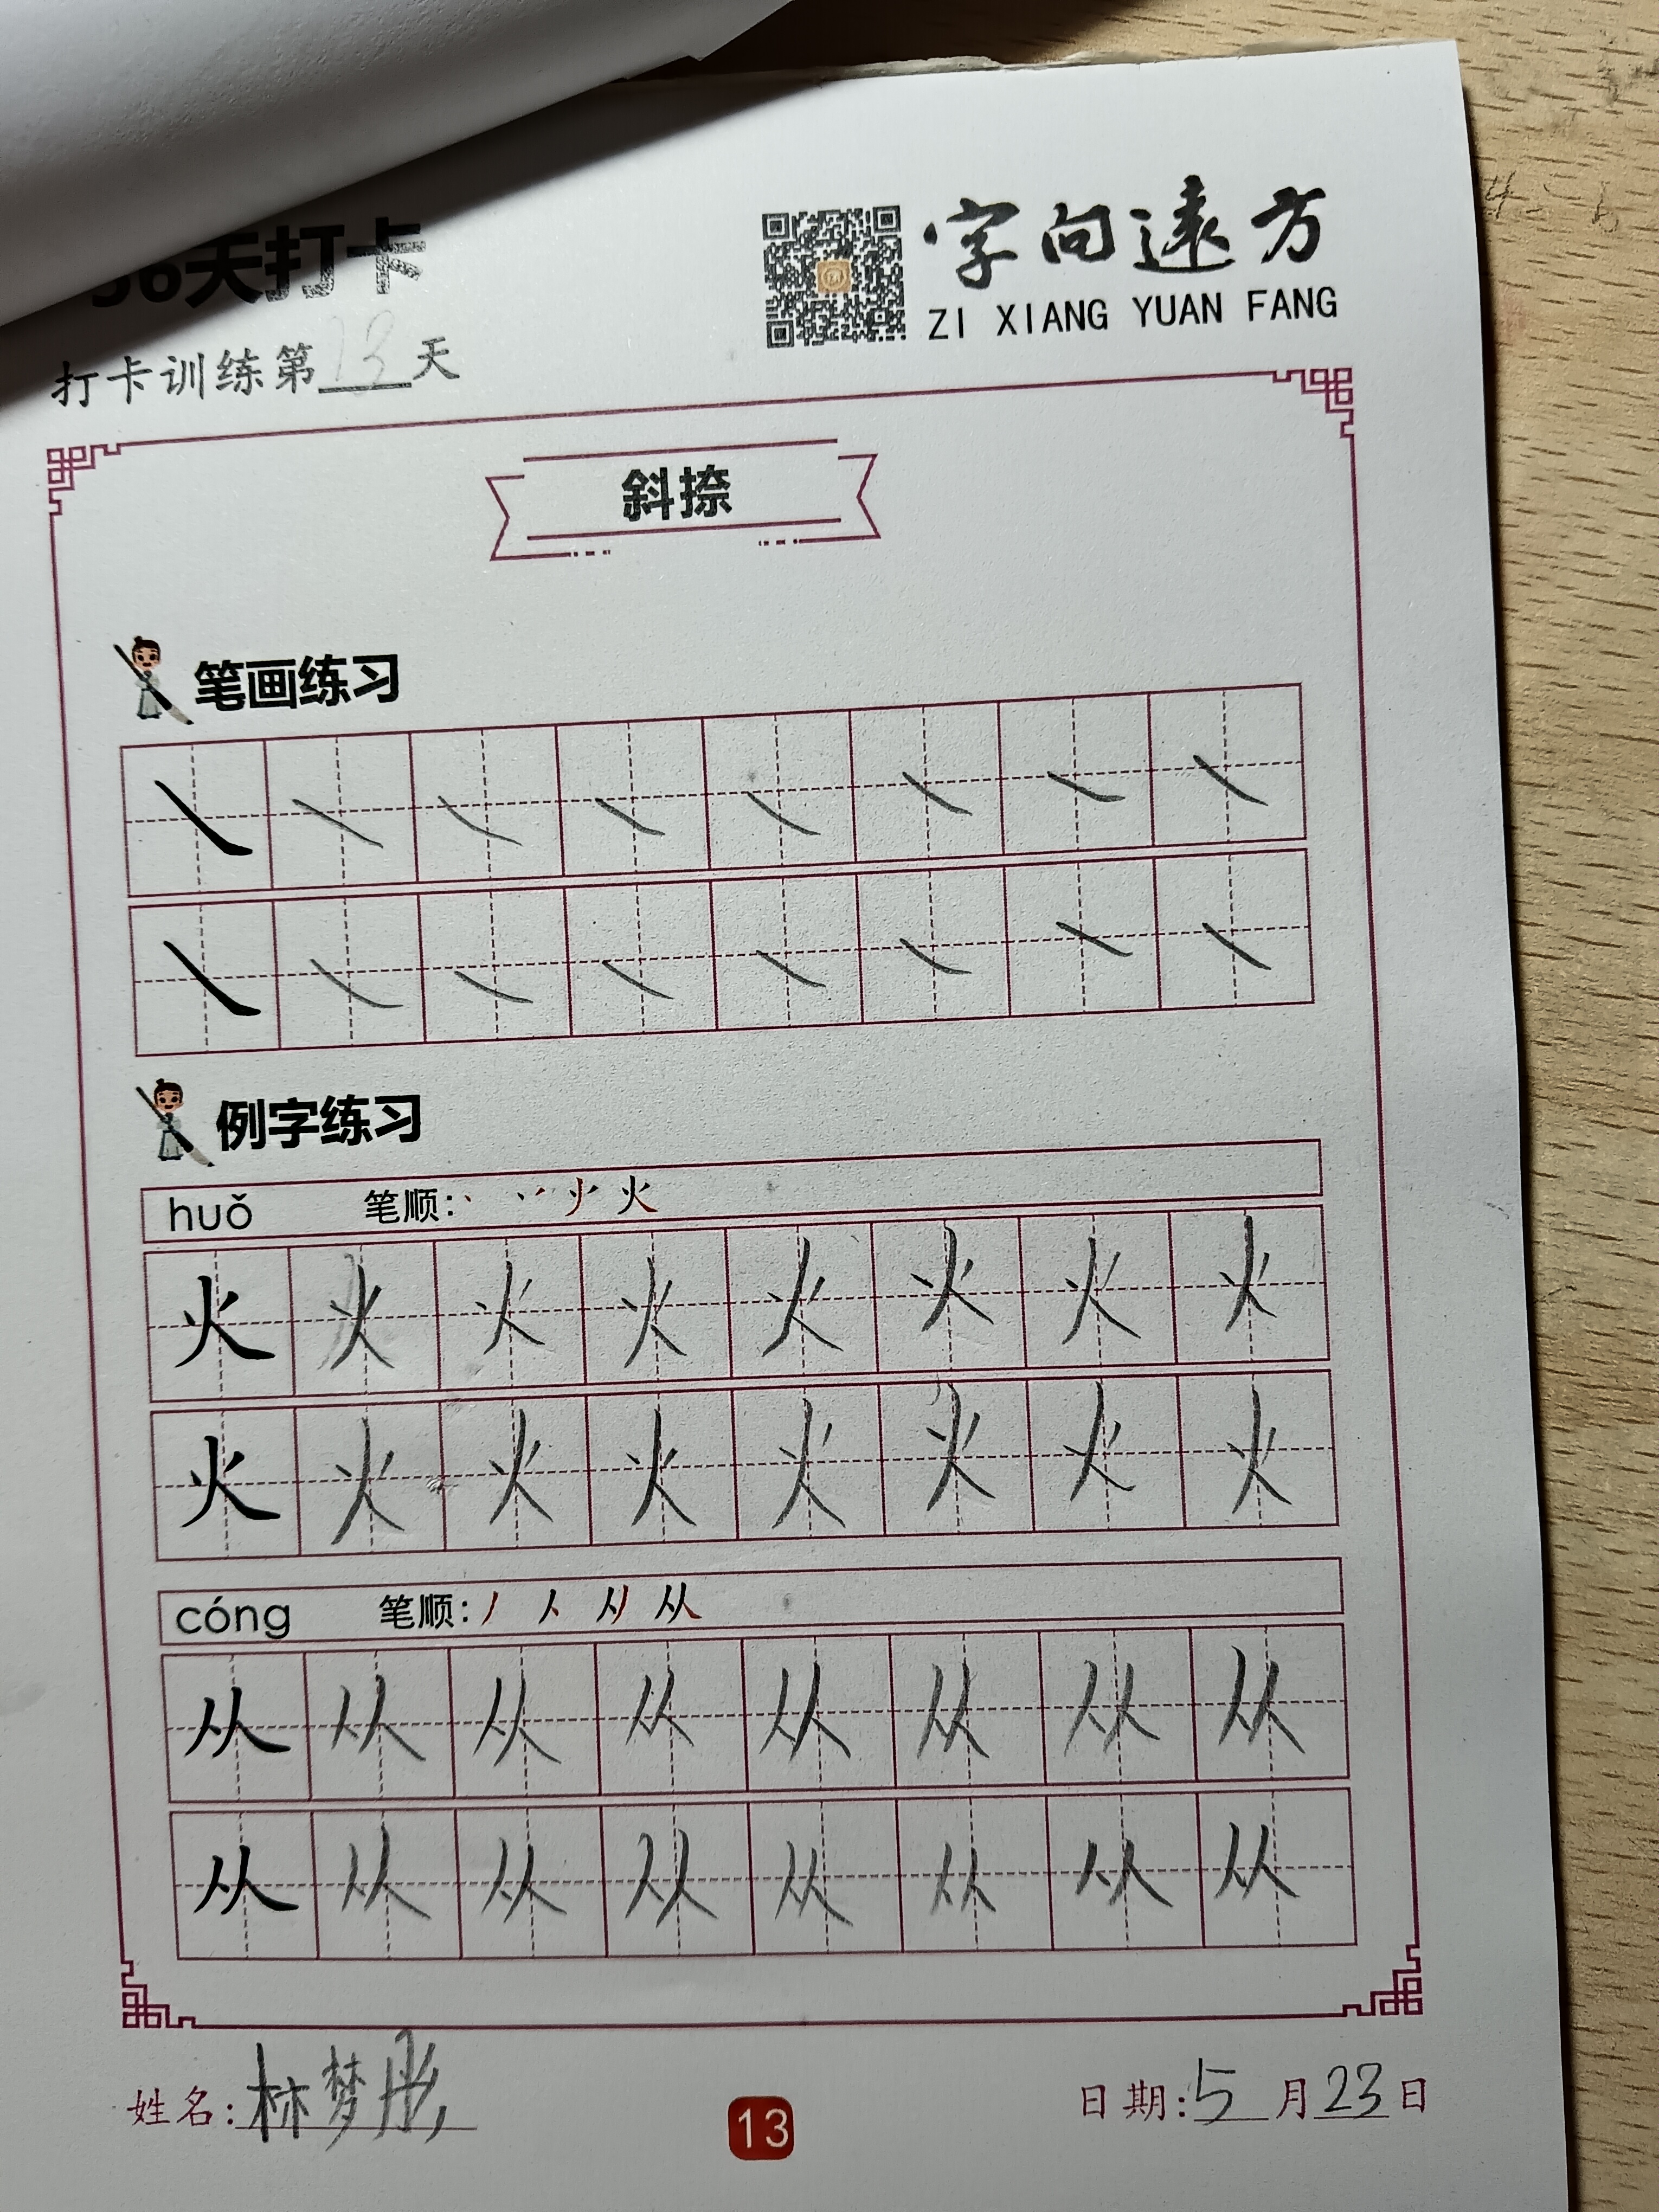 字向遠方
ZI XIANG YUAN FANG
36天打卡
打卡训练第13天
斜捺
笔画练习
㇏ ㇏ ㇏ ㇏ ㇏ ㇏ ㇏ ㇏
㇏ ㇏ ㇏ ㇏ ㇏ ㇏ ㇏ ㇏
例字练习
huǒ 笔顺: 火
火 火 火 火 火 火 火 火
火 火 火 火 火 火 火 火
cóng 笔顺: 丿 人 从
从 从 从 从 从 从 从 从
从 从 从 从 从 从 从 从
姓名:林梦彤
13
日期:5月23日